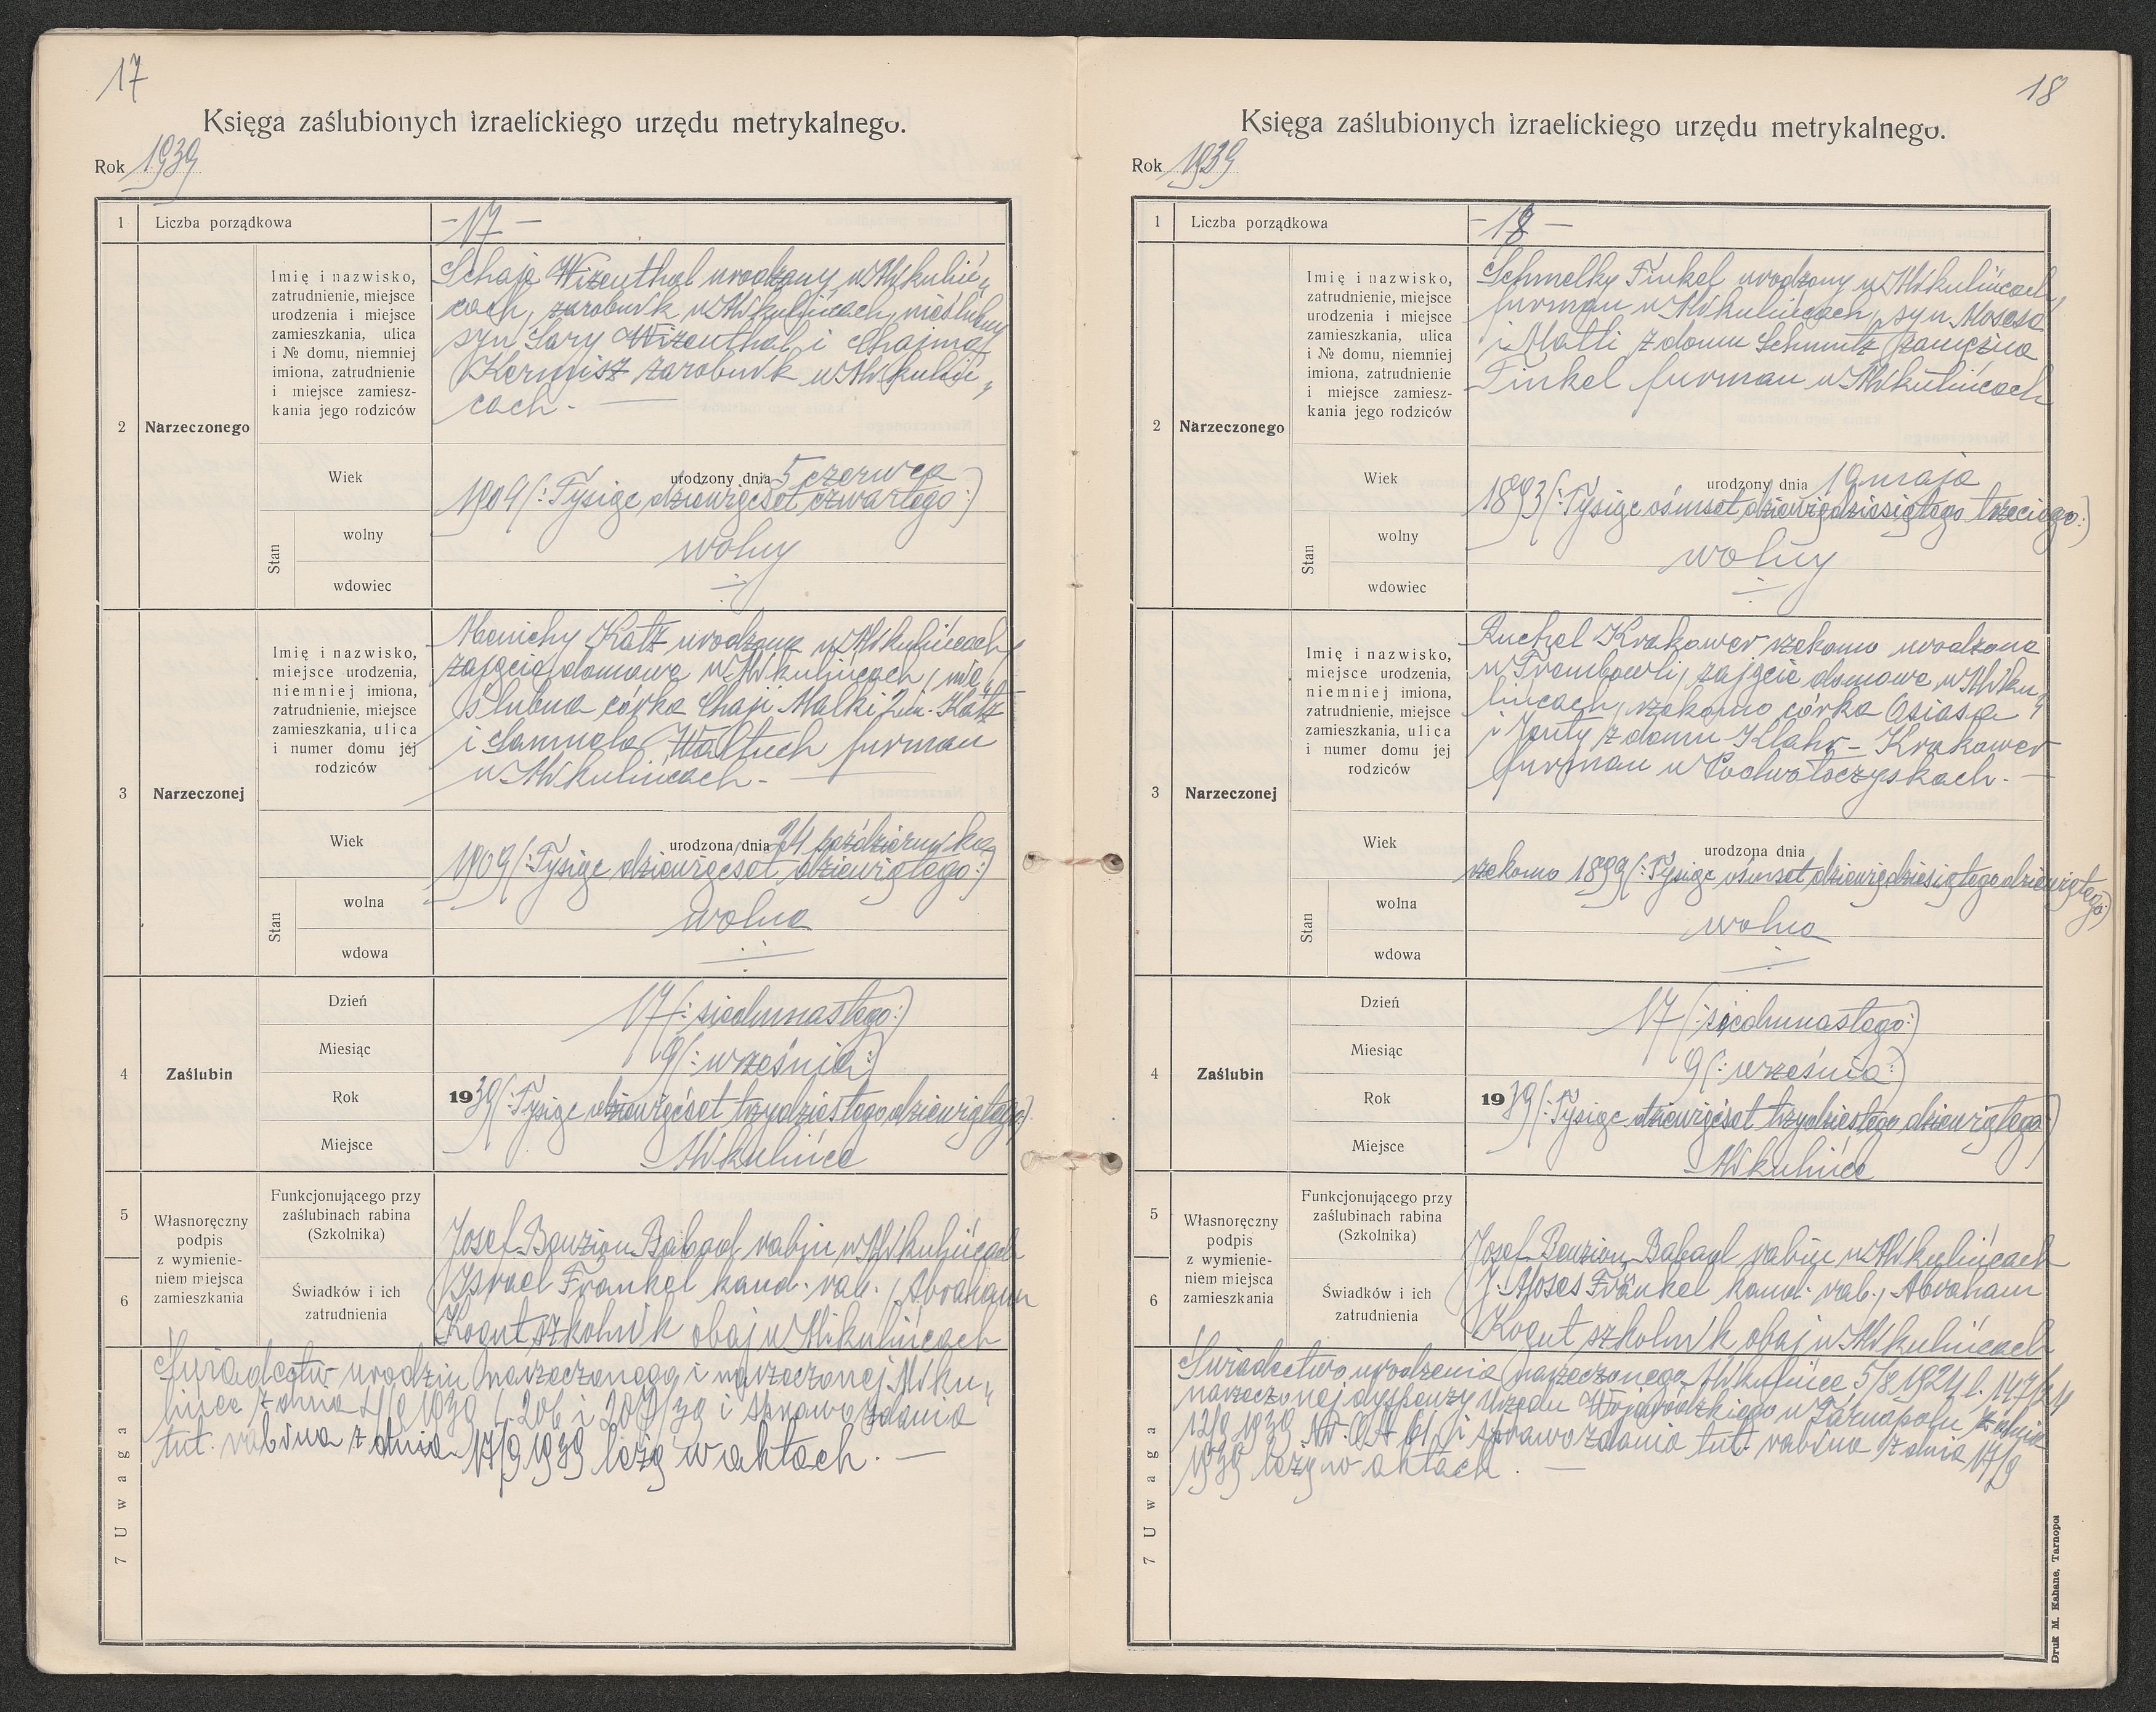 17
Księga zaślubionych izraelickiego urzędu metrykalnego.
Rok 1939
1 Liczba porządkowa
-17-
2 Narzeczonego
Imię i nazwisko,
zatrudnienie, miejsce
urodzenia i miejsce
zamieszkania, ulica
i № domu, niemniej
imiona, zatrudnienie
i miejsce zamiesz-
kania jego rodziców
Schaje Wizenthal urodzony w Mikuliń„
cach, zarobnik w Mikulińcach, nieślubny
syn Sary Wizenthal i Chaima
Kermisz zarobnik w Mikuliń„
cach.-
Wiek
urodzony dnia 5 czerwca
1904 (: Tysiąc dziewięćset czwartego :)
Stan
wolny
wolny
wdowiec
3 Narzeczonej
Imię i nazwisko,
miejsce urodzenia,
niemniej imiona,
zatrudnienie, miejsce
zamieszkania, ulica
i numer domu jej
rodziców
Menichy Katz urodzona w Mikulińcach,
zajęcie domowe w Mikulińcach, nie„
ślubna córka Chaji Malki Katz
i Samuela Waltuch furman
w Mikulińcach.-
Wiek
urodzona dnia 24 października
1909 (: Tysiąc dziewięćset dziewiątego :)
Stan
wolna
wolna
wdowa
4 Zaślubin
Dzień
17 (: siedmnastego :)
Miesiąc
9 (: września :)
Rok
1939 (: Tysiąc dziewięćset trzydziestego dziewiątego :)
Miejsce
Mikulińce
5
6
Własnoręczny
podpis
z wymienie-
niem miejsca
zamieszkania
Funkcjonującego przy
zaślubinach rabina
(Szkolnika)
Josef Benzion Babad rabin w Mikulińcach
Świadków i ich
zatrudnienia
Israel Frankel kand. rab., Abraham
Kogut szkolnik obaj w Mikulińcach
7 Uwaga
Świadectw urodzin narzeczonego i narzeczonej Miku„
lińce z dnia 4/9 1939 l. 206 i 207/39 i sprawozdania
tut. rabina z dnia 17/9 1939 leżą w aktach.-
18
Księga zaślubionych izraelickiego urzędu metrykalnego.
Rok 1939
1 Liczba porządkowa
-18-
2 Narzeczonego
Imię i nazwisko,
zatrudnienie, miejsce
urodzenia i miejsce
zamieszkania, ulica
i № domu, niemniej
imiona, zatrudnienie
i miejsce zamiesz-
kania jego rodziców
Schmelky Finkel urodzony w Mikulińcach,
furman w Mikulińcach, syn Mosesa
i Malli z domu Schmutz zamężna
Finkel furman w Mikulińcach
Wiek
urodzony dnia 19 maja
1893 (: Tysiąc ośmset dziewięćdziesiątego trzeciego :)
Stan
wolny
wolny
wdowiec
3 Narzeczonej
Imię i nazwisko,
miejsce urodzenia,
niemniej imiona,
zatrudnienie, miejsce
zamieszkania, ulica
i numer domu jej
rodziców
Ruchel Krakower rzekomo urodzona
w Trembowli, zajęcie domowe w Miku„
lińcach, rzekomo córka Osiasa
i Jenty z domu Klahr - Krakower
furman w Podwołoczyskach.-
Wiek
urodzona dnia
rzekomo 1899 (: Tysiąc ośmset dziewięćdziesiątego dziewiątego :)
Stan
wolna
wolna
wdowa
4 Zaślubin
Dzień
17 (: siedmnastego :)
Miesiąc
9 (: września :)
Rok
1939 (: Tysiąc dziewięćset trzydziestego dziewiątego :)
Miejsce
Mikulińce
5
6
Własnoręczny
podpis
z wymienie-
niem miejsca
zamieszkania
Funkcjonującego przy
zaślubinach rabina
(Szkolnika)
Josef Benzion Babad rabin w Mikulińcach
Świadków i ich
zatrudnienia
J. Moses Fränkel kand. rab., Abraham
Kogut szkolnik obaj w Mikulińcach
7 Uwaga
Świadectwo urodzenia narzeczonego Mikulińce 5/8 1924 l. 147/24
narzeczonej dyspenzy Urzędu Wojewódzkiego w Tarnopolu z dnia
12/9 1939 Nr. i sprawozdania tut. rabina z dnia 17/9
1939 leżą w aktach.-
Druk M. Kahane, Tarnopol